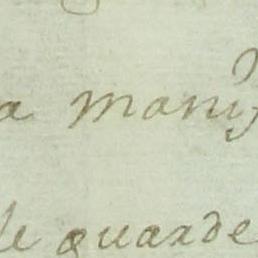 a manif
le quarde